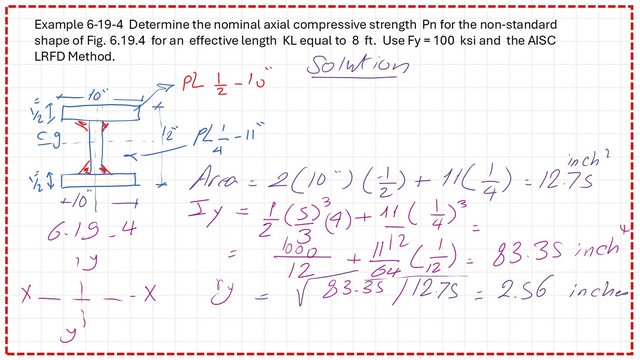 Example 6-19-4 Determine the nominal axial compressive strength Pn for the non-standard
shape of Fig. 6.19.4 for an effective length KL equal to 8 ft. Use Fy = 100 ksi and the AISC
LRFD Method.
Solution
10"
PL 1/2 - 10"
1/2"
C.g
12"
PL 1/4 - 11"
1/2"
10"
6-19-4
Area = 2(10")(1/2) + 11(1/4) = 12.75 inch²
Iy = 1/2 (5/3)³(4) + 11/12 (1/4)³ =
= 1000/12 + 11/64 (1/12) = 83.35 inch⁴
ry = √83.35/12.75 = 2.56 inches
y
X - - X
y